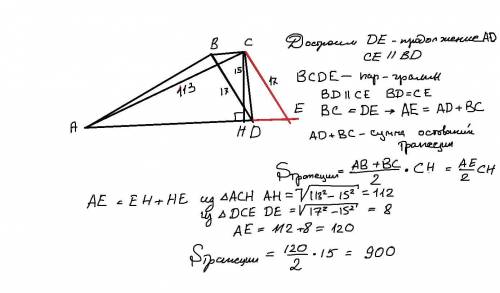 B C
15 17
113 17
A H D E
Достроим DE - продолжение AD
CE // BD
BCDE - пар-грамм
BD || CE BD = CE
BC = DE → AE = AD + BC
AD + BC - сумма оснований
трапеции
Sтрапеции = AB + BC / 2 · CH = AE / 2 CH
AE = EH + HE из △ACH AH = √113² - 15² = 112
из △DCE DE = √17² - 15² = 8
AE = 112 + 8 = 120
Sтрапеции = 120 / 2 · 15 = 900